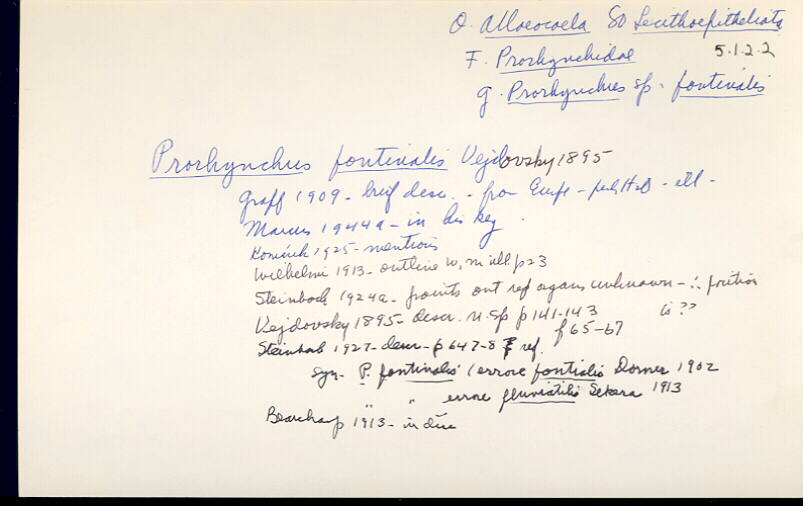 O. Alloeocoela SO Lecithoepitheliata
F. Prorhynchidae 5.1.2.2
g. Prorhynchus sp. fontinalis
Prorhynchus fontinalis Vejdovsky 1895
Graff 1909 - brief descr. - from Europe - - ill -
Marcus 1944a - in his key.
Komárek 1925 - mentions
Wilhelmi 1913 - outline w, m ill p23
Steinbock 1924a - points out rep organs unknown - ∴ position is ??
Vejdovsky 1895 - descr. n. sp p 141-143
f 65-67
Steinbock 1927 - descr - p 647-8 ref.
Syn - P. fontinalis (errore fontialis Dorner 1902
" " errore fluviatilis Sekera 1913
Beauchamp 1913 - in